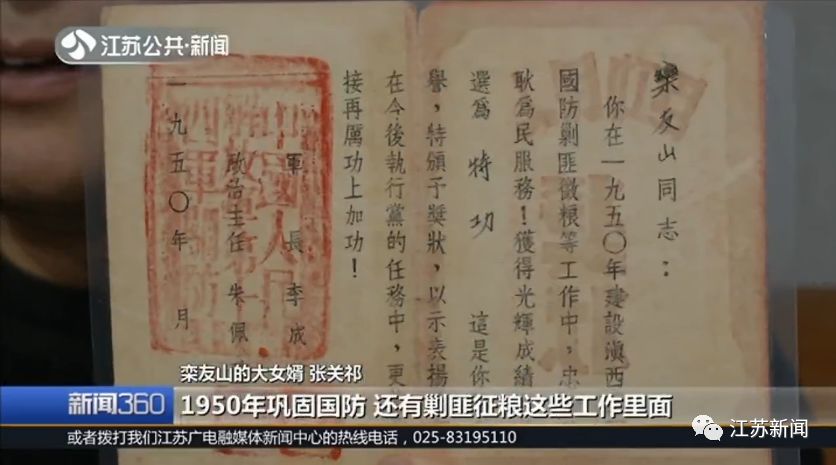 江苏公共·新闻
栾友山同志：
你在一九五〇年建設滇西
國防剿匪徵粮等工作中，忠
耿為民服務！獲得光輝成績
選為 特功 這是你
譽，特頒予獎狀，以示表揚
在今後執行黨的任務中，更
接再厲功上加功！
軍長 李成
政治主任 朱佩
一九五〇年 月
栾友山的大女婿 张关祁
新闻360
1950年巩固国防 还有剿匪征粮这些工作里面
或者拨打我们江苏广电融媒体新闻中心的热线电话，025-83195110
江苏新闻